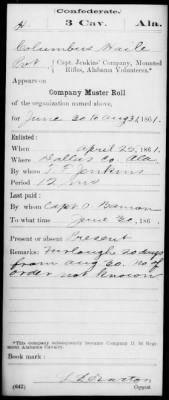 (Confederate.)
H. 3 Cav. Ala.
Columbus Haile
Pvt, Capt. Jenkins' Company, Mounted
Rifles, Alabama Volunteers.*
Appears on
Company Muster Roll
of the organization named above,
for June 30 to Aug 31, 1861.
Enlisted:
When April 25, 1861.
Where Dallas Co. Ala
By whom T. F. Jenkins
Period 12 mos
Last paid:
By whom Capt
To what time June 30, 186 .
Present or absent Present
Remarks: Furlough 20 days
from Aug 30. No of
order not known
*This company subsequently became Company H, 3d Regi-
ment Alabama Cavalry.
Book mark:
(642)
Copyist.